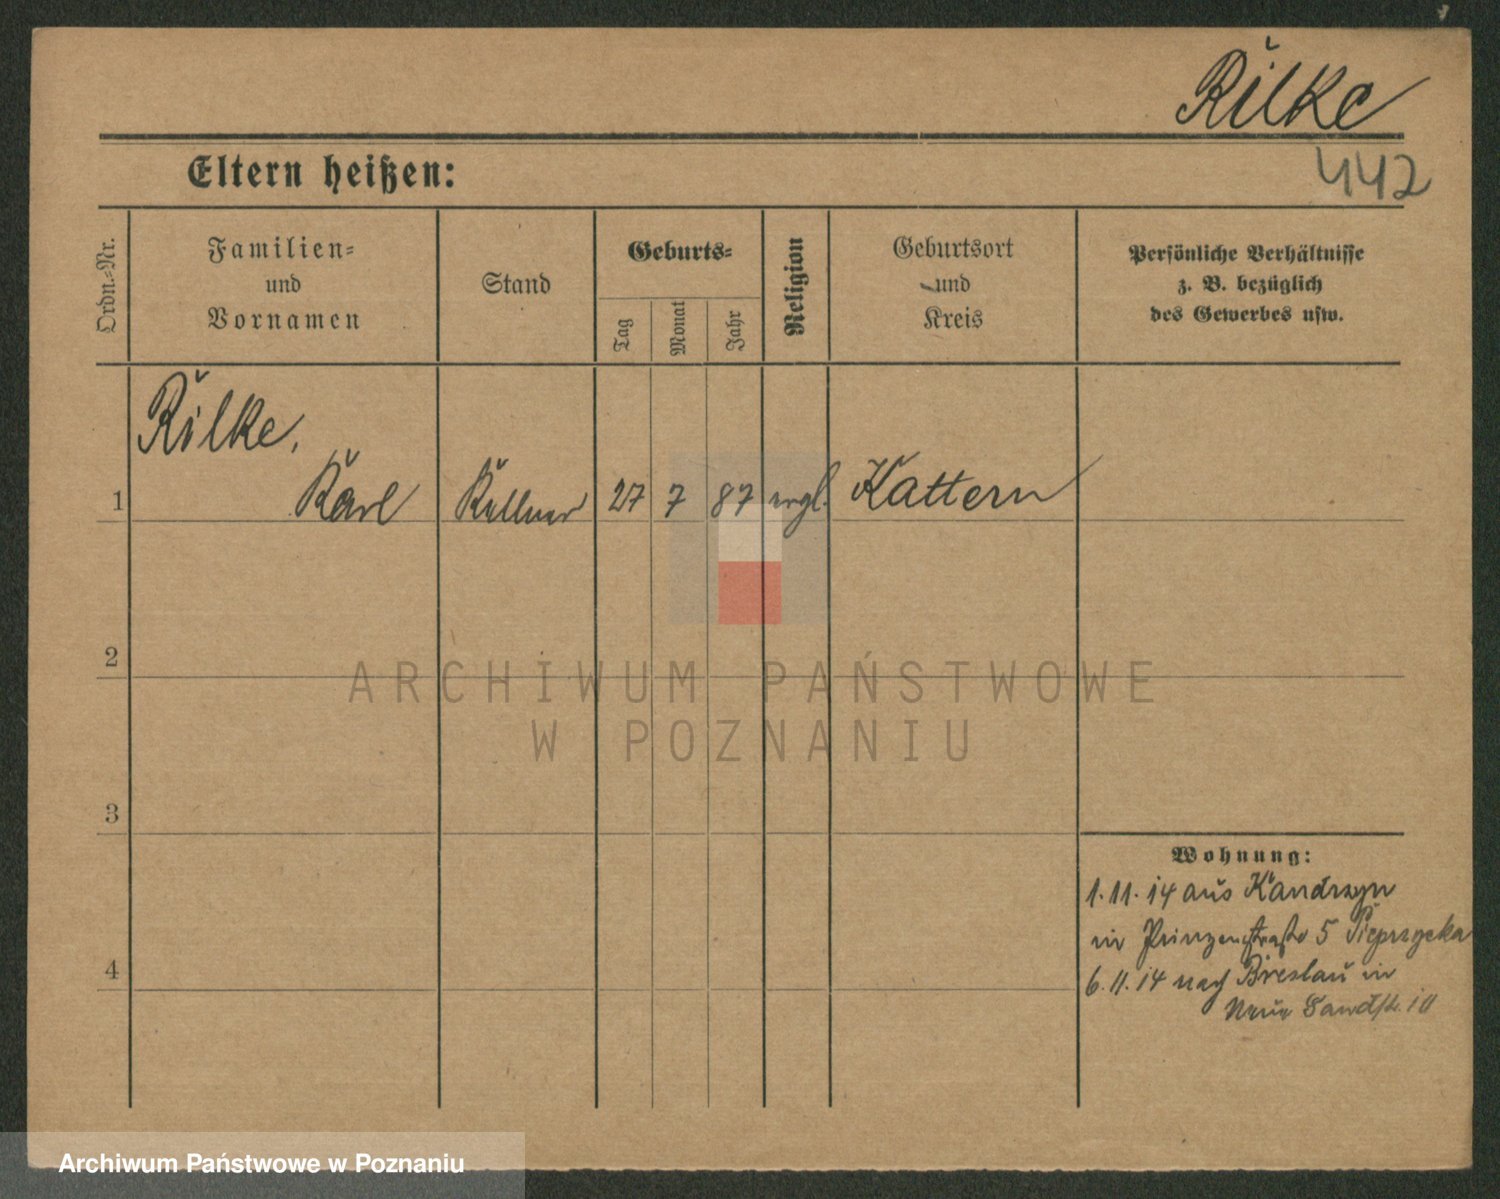 Rilke
442
Eltern heißen:
Ordn.=Nr.
Familien=
und
Vornamen
Stand
Geburts=
Tag
Monat
Jahr
Religion
Geburtsort
und
Kreis
Persönliche Verhältnisse
z. B. bezüglich
des Gewerbes usw.
Rilke,
1 Karl Kellner 27 7 87 evgl. Kattern
2
3
4
Wohnung:
1.11.14 aus Kandrzyn
in Prinzenstraße 5 Pieprzycka
6.11.14 nach Breslau in
Neue Sandstr. 10
ARCHIWUM PAŃSTWOWE
W POZNANIU
Archiwum Państwowe w Poznaniu